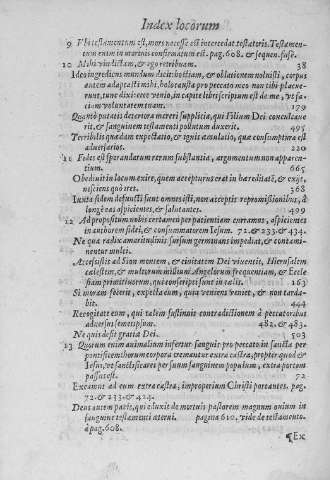 Index locorum
9 Vbi testamentum est, mors necesse est intercedat testatoris. Testamen-
tum enim in mortuis confirmatum est. pag. 608. & sequen. fusè.
10 Mihi vindictam, & ego retribuam. 38
Ideo ingrediens mundum dicit: hostiam, & oblationem noluisti, corpus
autem adaptasti mihi, holocausta pro peccato meo non tibi placue-
runt, tunc dixi ecce venio, in capite libri scriptum est de me, vt fa-
ciam voluntatem tuam. 179
Quantò putatis deteriora mereri supplicia, qui Filium Dei conculcaue
rit, & sanguinem testamenti pollutum duxerit. 495
Terribilis quædam expectatio, & ignis æmulatio, quæ consumptura est
aduersarios. 220
11 Fides est sperandarum rerum substantia, argumentum non apparen-
tium. 665
Obediuit in locum exire, quem accepturus erat in hæreditatē, & exijt,
nesciens quò iret. 368
Iuxta fidem defuncti sunt omnes isti, non acceptis repromissionibus, à
longè eas aspicientes, & salutantes. 499
12 Ad propositum nobis certamen per patientiam curramus, aspicientes
in authorem fidei, & consummatorem Iesum. 72. & 233. & 434.
Ne qua radix amaritudinis sursum germinans impediat, & contami-
nentur multi.
Accessistis ad Sion montem, & ciuitatem Dei viuentis, Hierusalem
cælestem, & multorum millium Angelorum frequentiam, & Eccle
siam primitiuorum, qui conscripti sunt in cælis. 163
Si moram fecerit, expecta eum, quia veniens veniet, & non tarda-
bit. 444
Recogitate eum, qui talem sustinuit contradictionem à peccatoribus
aduersus semetipsum. 482. & 483.
Ne quis desit gratia Dei. 503
13 Quorum enim animalium infertur sanguis pro peccato in sancta per
pontificem, horum corpora cremantur extra castra, propter quod &
Iesus, vt sanctificaret per suum sanguinem populum, extra portam
passus est. 72
Exeamus ad eum extra castra, improperium Christi portantes. pag.
72. & 233. & 424.
Deus autem pacis, qui eduxit de mortuis pastorem magnum ouium in
sanguine testamenti æterni. pagina 610. vide de testamento.
à pag. 608.
¶Ex